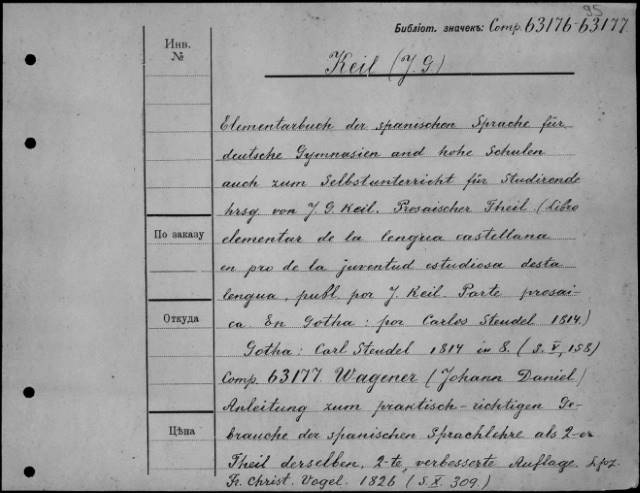 95
Библіот. значекъ: Comp. 63176-63177
Инв.
№
Keil (J. G)
Elementarbuch der spanischen Sprache für
deutsche Gymnasien and hohe Schulen
auch zum Selbstunterricht für Studirende
hrsg. von J. G. Keil. Prosaischer Theil. (Libro
По заказу
elementar de la lengua castellana
en pro de la juventud estudiosa desta
lengua, publ. por J. Keil. Parte prosai-
Откуда
ca En Gotha: por Carlos Steudel 1814.)
Gotha: Carl Steudel 1814 in 8. (S. V, 158)
Comp. 63177 Wagener (Johann Daniel)
Anleitung zum praktisch-richtigen Ge-
Цѣна
brauche der spanischen Sprachlehre als 2-er
Theil derselben, 2-te, verbesserte Auflage. Lpz.
Fr. Christ. Vogel. 1826 (S. X. 309.)